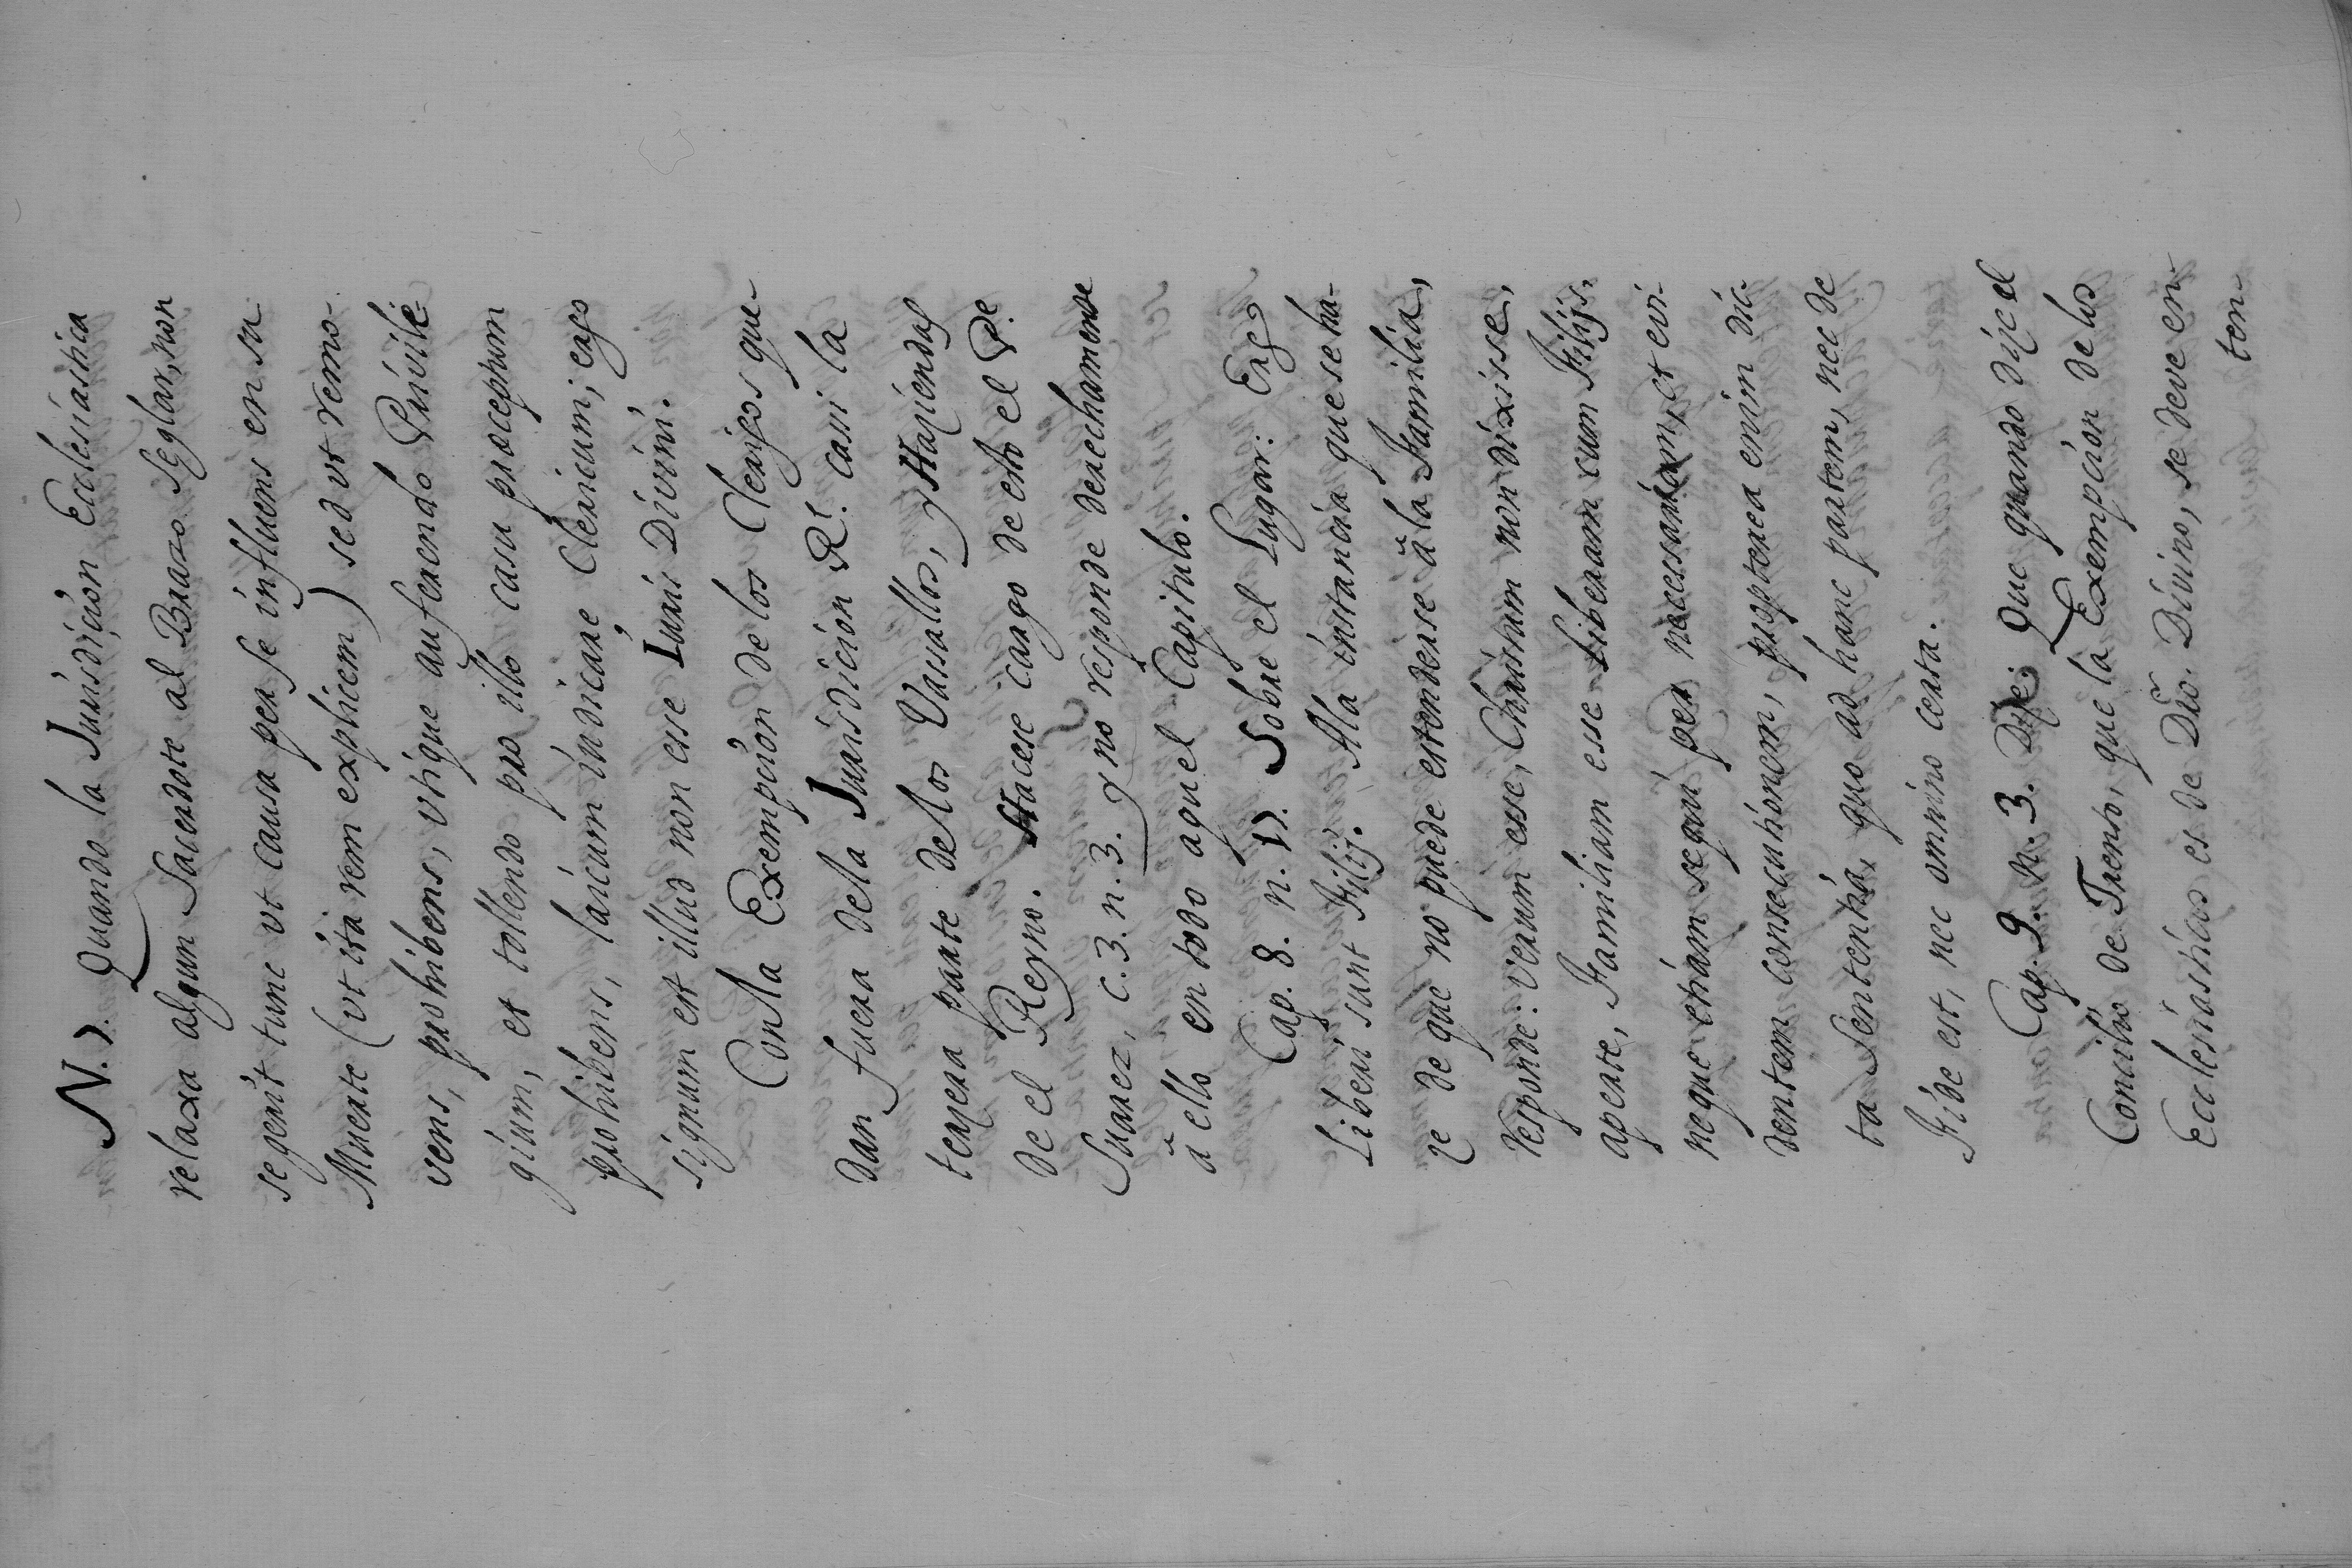 N. 7. Quando la Jurisdicion Ecclesiastica
relaxa algun Sacerdote al Brazo Seglar, non
se gerit tunc vt causa per se influens en su
Muerte (vt ita rem explicem) sed vt remo-
vens, prohibens, vtique auferendo Privile-
gium, et tollendo pro illo casu præceptum
prohibens, laicum iudicare Clericum; ergo
signum est illud non esse Iuris Divini.
Con la Exempcion de los Clerigos que-
dan fuera de la Jurisdicion Rl. casi la
terzera parte de los Vasallos, y Haziendas
de el Reyno. Hacese cargo de esto el Pe.
Suarez, c. 3. n. 3. y no responde derechamente
ă ello en todo aquel Capitulo.
Cap. 8. n. 17. Sobre el Lugar: Ergo
Liberi sunt Filij. A la instancia que se ha-
ze de que no puede estenderse ă la Familia,
responde: verum esse, Christum non dixisse,
aperte, Familiam esse Liberam cum Filijs.
neque etiam sequi per necessariam, et evi-
dentem consecutionem, propterea enim dic-
ta Sententia, quo ad hanc partem, nec de
Fide est, nec omnino certa.
Cap. 9. n. 3. Dize: Que quando dize el
Concilio de Trento, que la Exempcion de los
Ecclesiasticos es de Dro. Divino, se deve en-
ten-